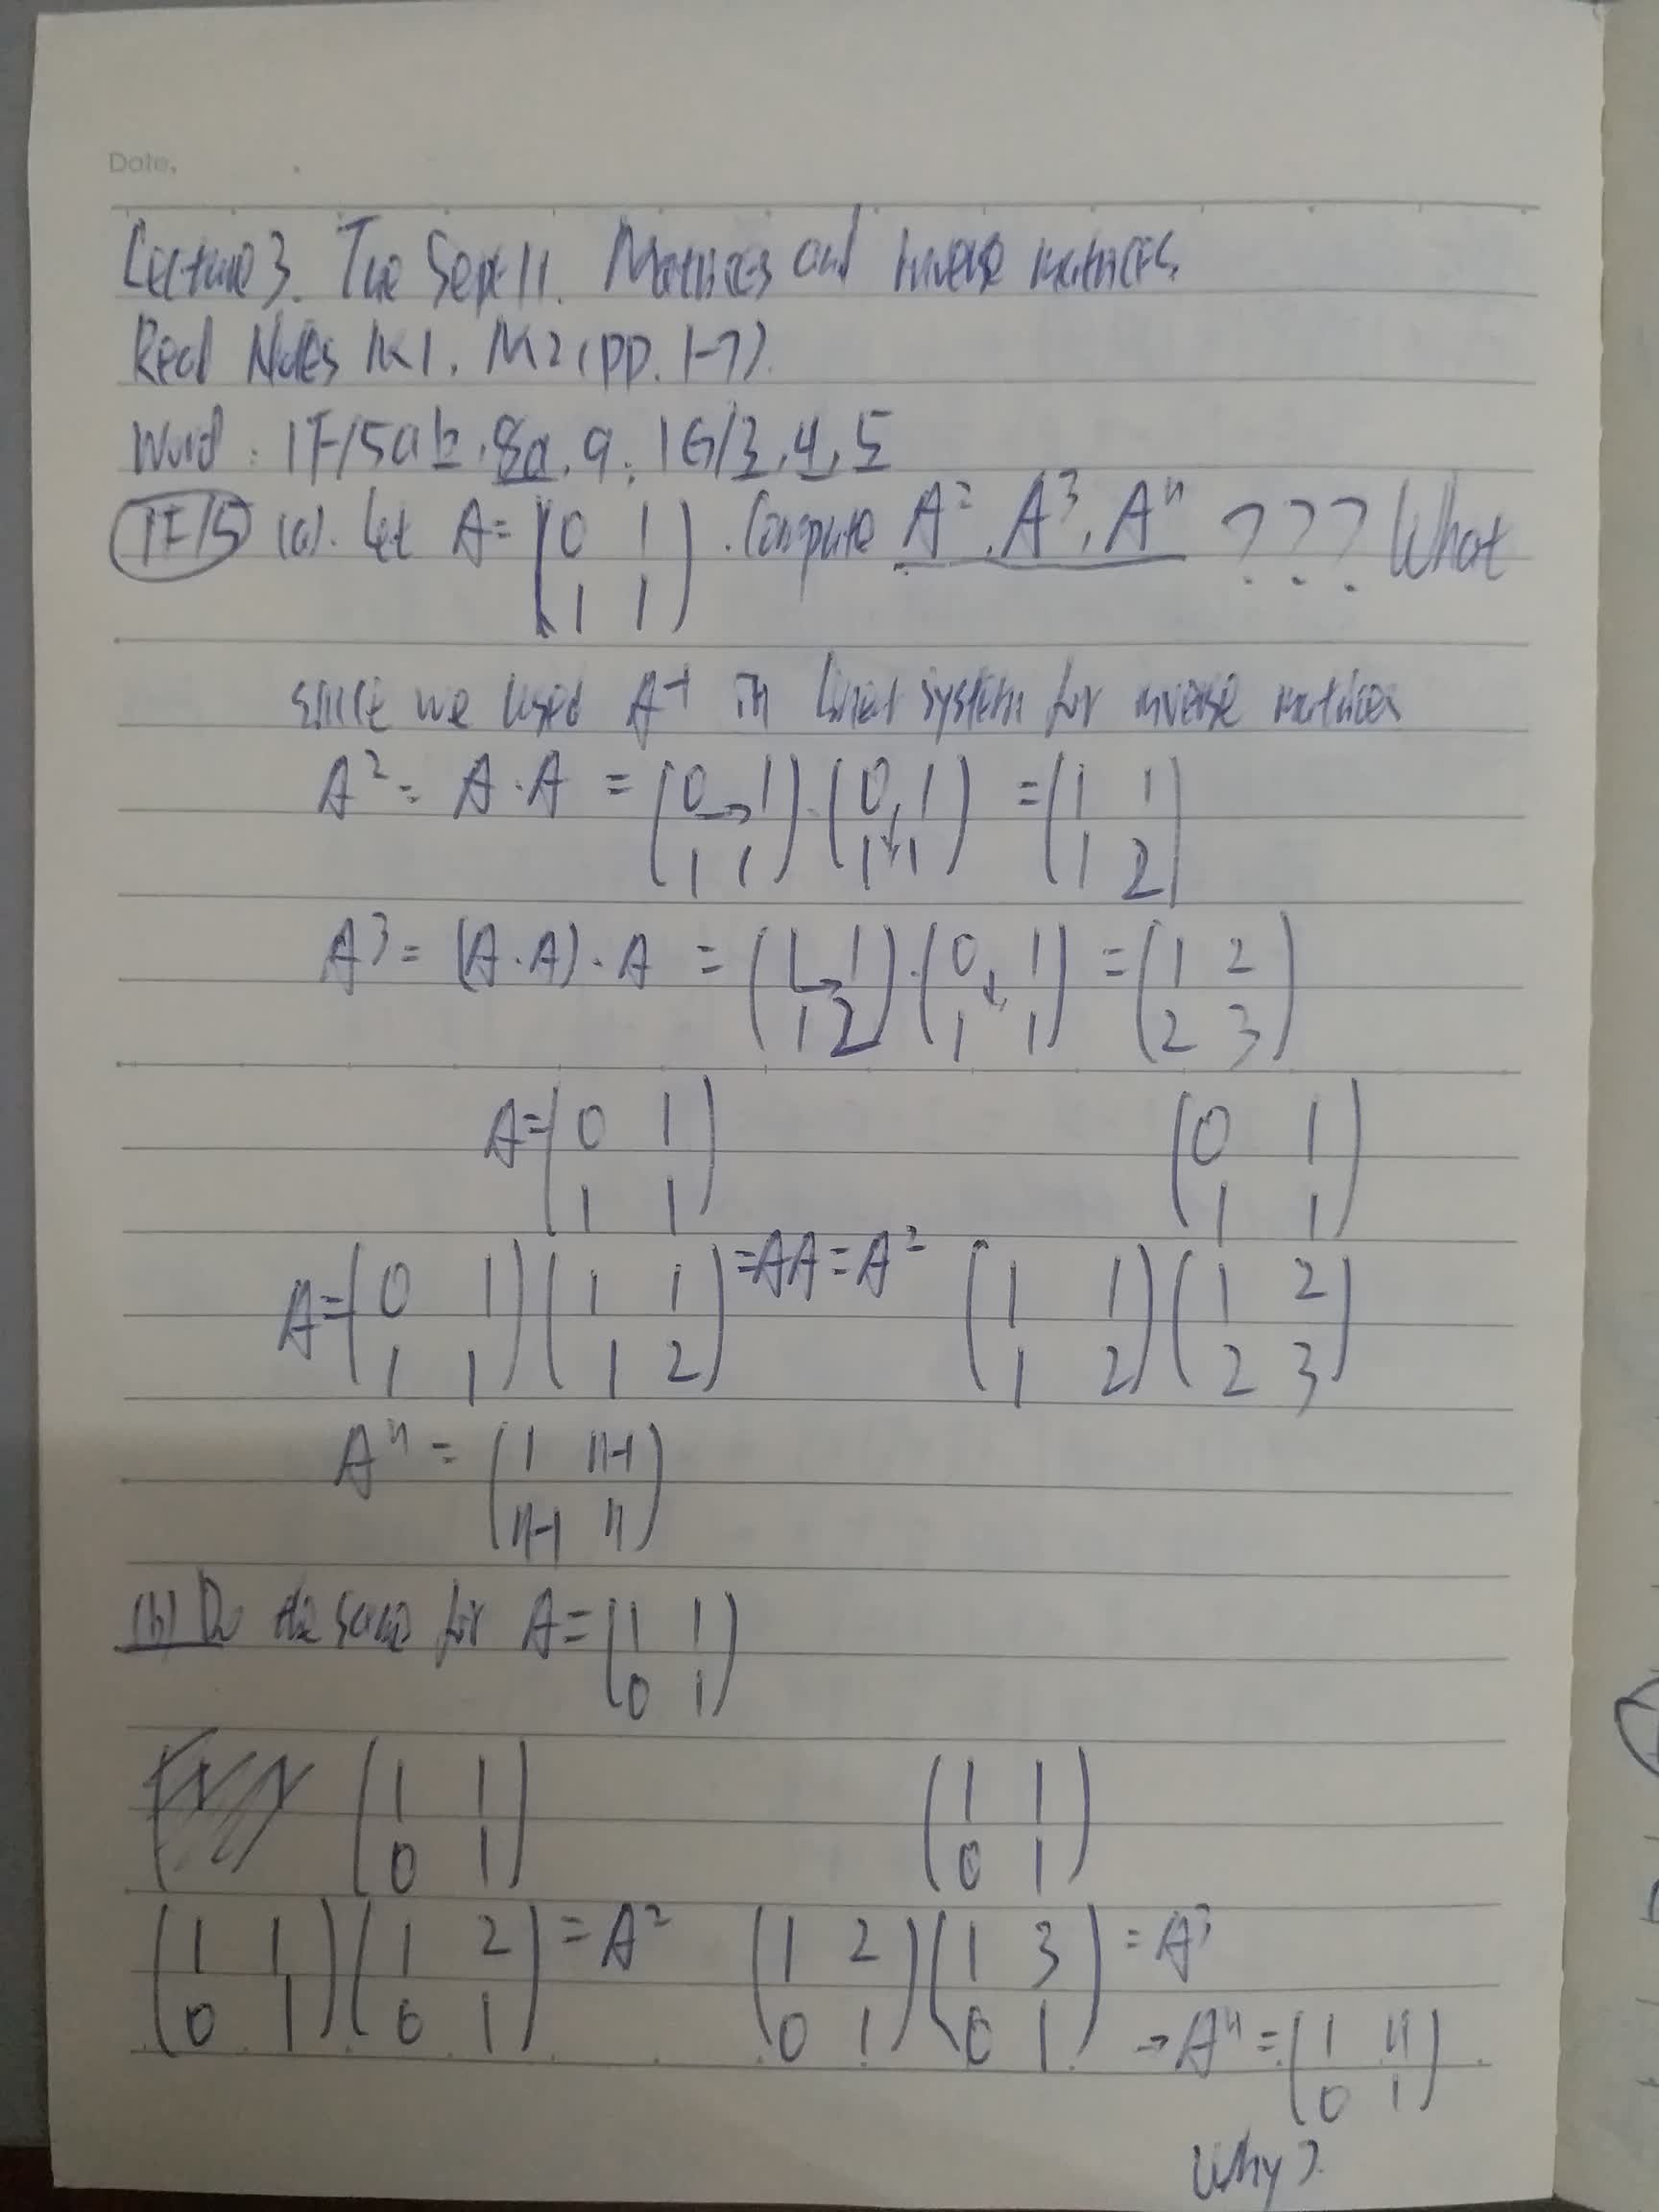 Date.
Lecture 3. Tue Sept 11. Matrices and inverse matrices.
Read Notes M.1, M.2 (pp. 1-7).
Work: 1F/5ab, 8a, 9; 1G/3, 4, 5
1F/5 (a). Let A = (0 1; 1 1). Compute A², A³, Aⁿ ??? What
since we used A⁻¹ in linear system for inverse matrices
A² = A·A = (0 1; 1 1)·(0 1; 1 1) = (1 1; 1 2)
A³ = (A·A)·A = (1 1; 1 2)·(0 1; 1 1) = (1 2; 2 3)
A = (0 1; 1 1) (0 1; 1 1)
A = (0 1; 1 1)(1 1; 1 2) = AA = A² (1 1; 1 2)(1 2; 2 3)
Aⁿ = (1 n-1; n-1 n)
(b) Do the same for A = (1 1; 0 1)
(1 1; 0 1) (1 1; 0 1)
(1 1; 0 1)(1 2; 0 1) = A² (1 2; 0 1)(1 3; 0 1) = A³
→ Aⁿ = (1 n; 0 1)
Why?